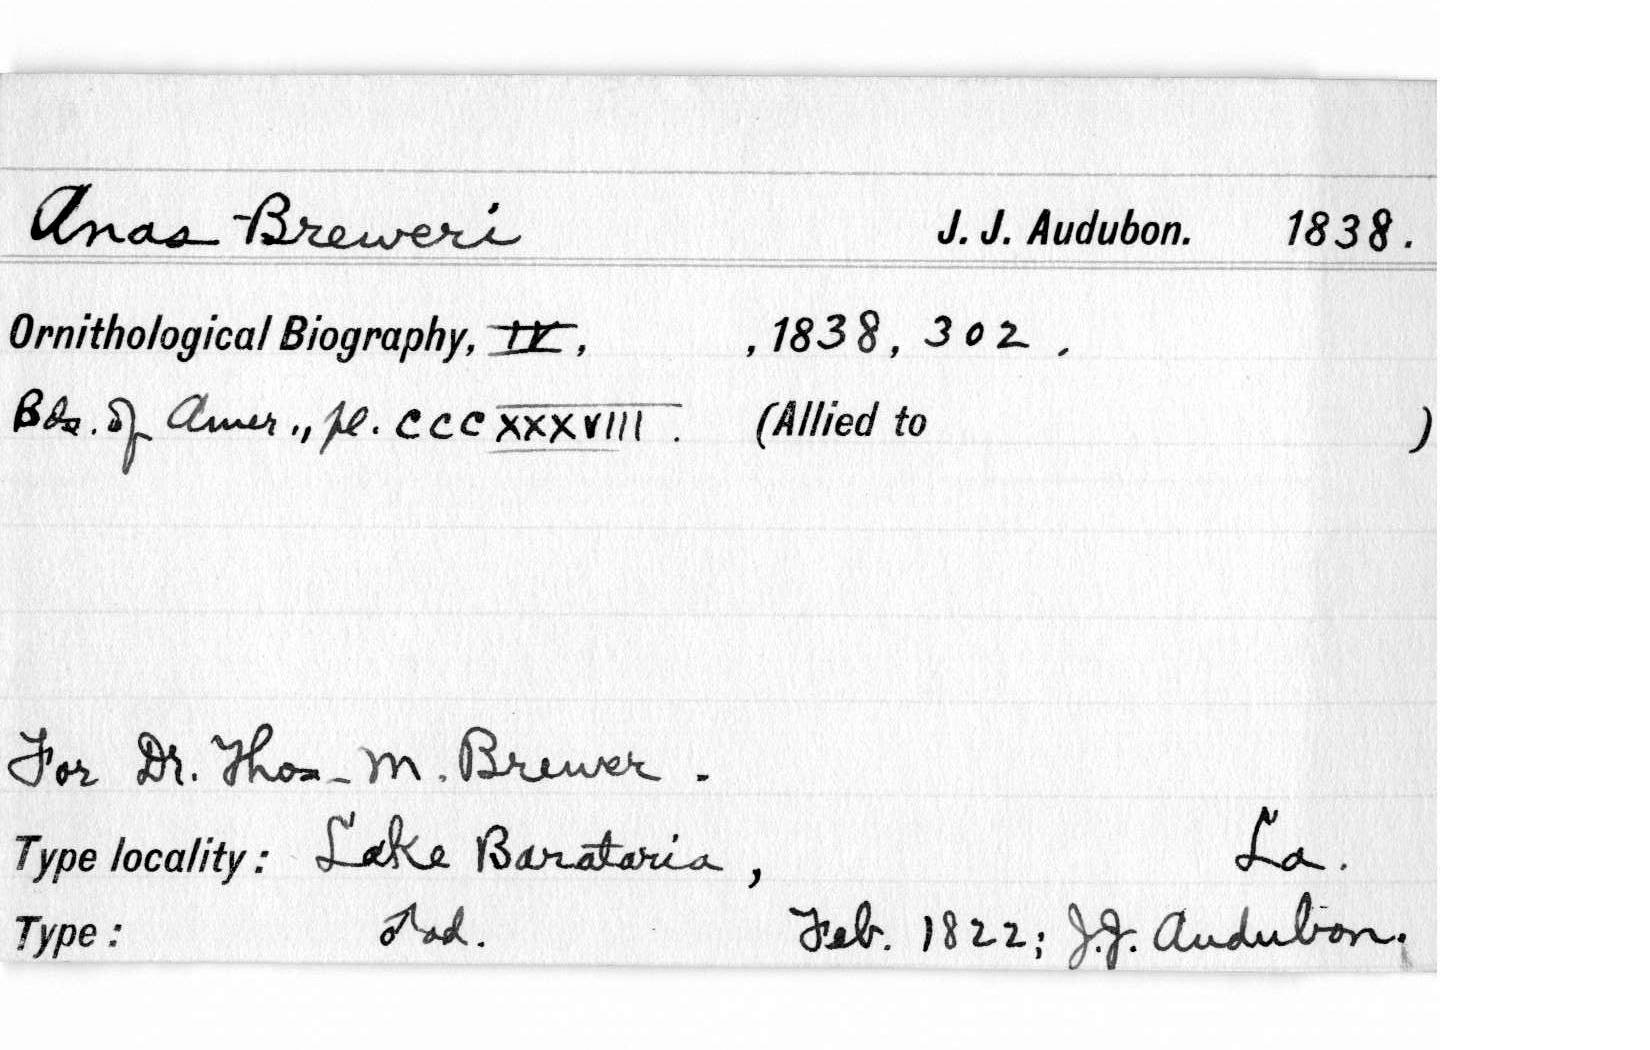 Anas Breweri J. J. Audubon. 1838.
Ornithological Biography, IV, , 1838, 302 ,
Bds. of Amer., pl. CCCXXXVIII. (Allied to )
For Dr. Thos. M. Brewer.
Type locality: Lake Barataria, La.
Type: ♂ad. Feb. 1822; J.J. Audubon.